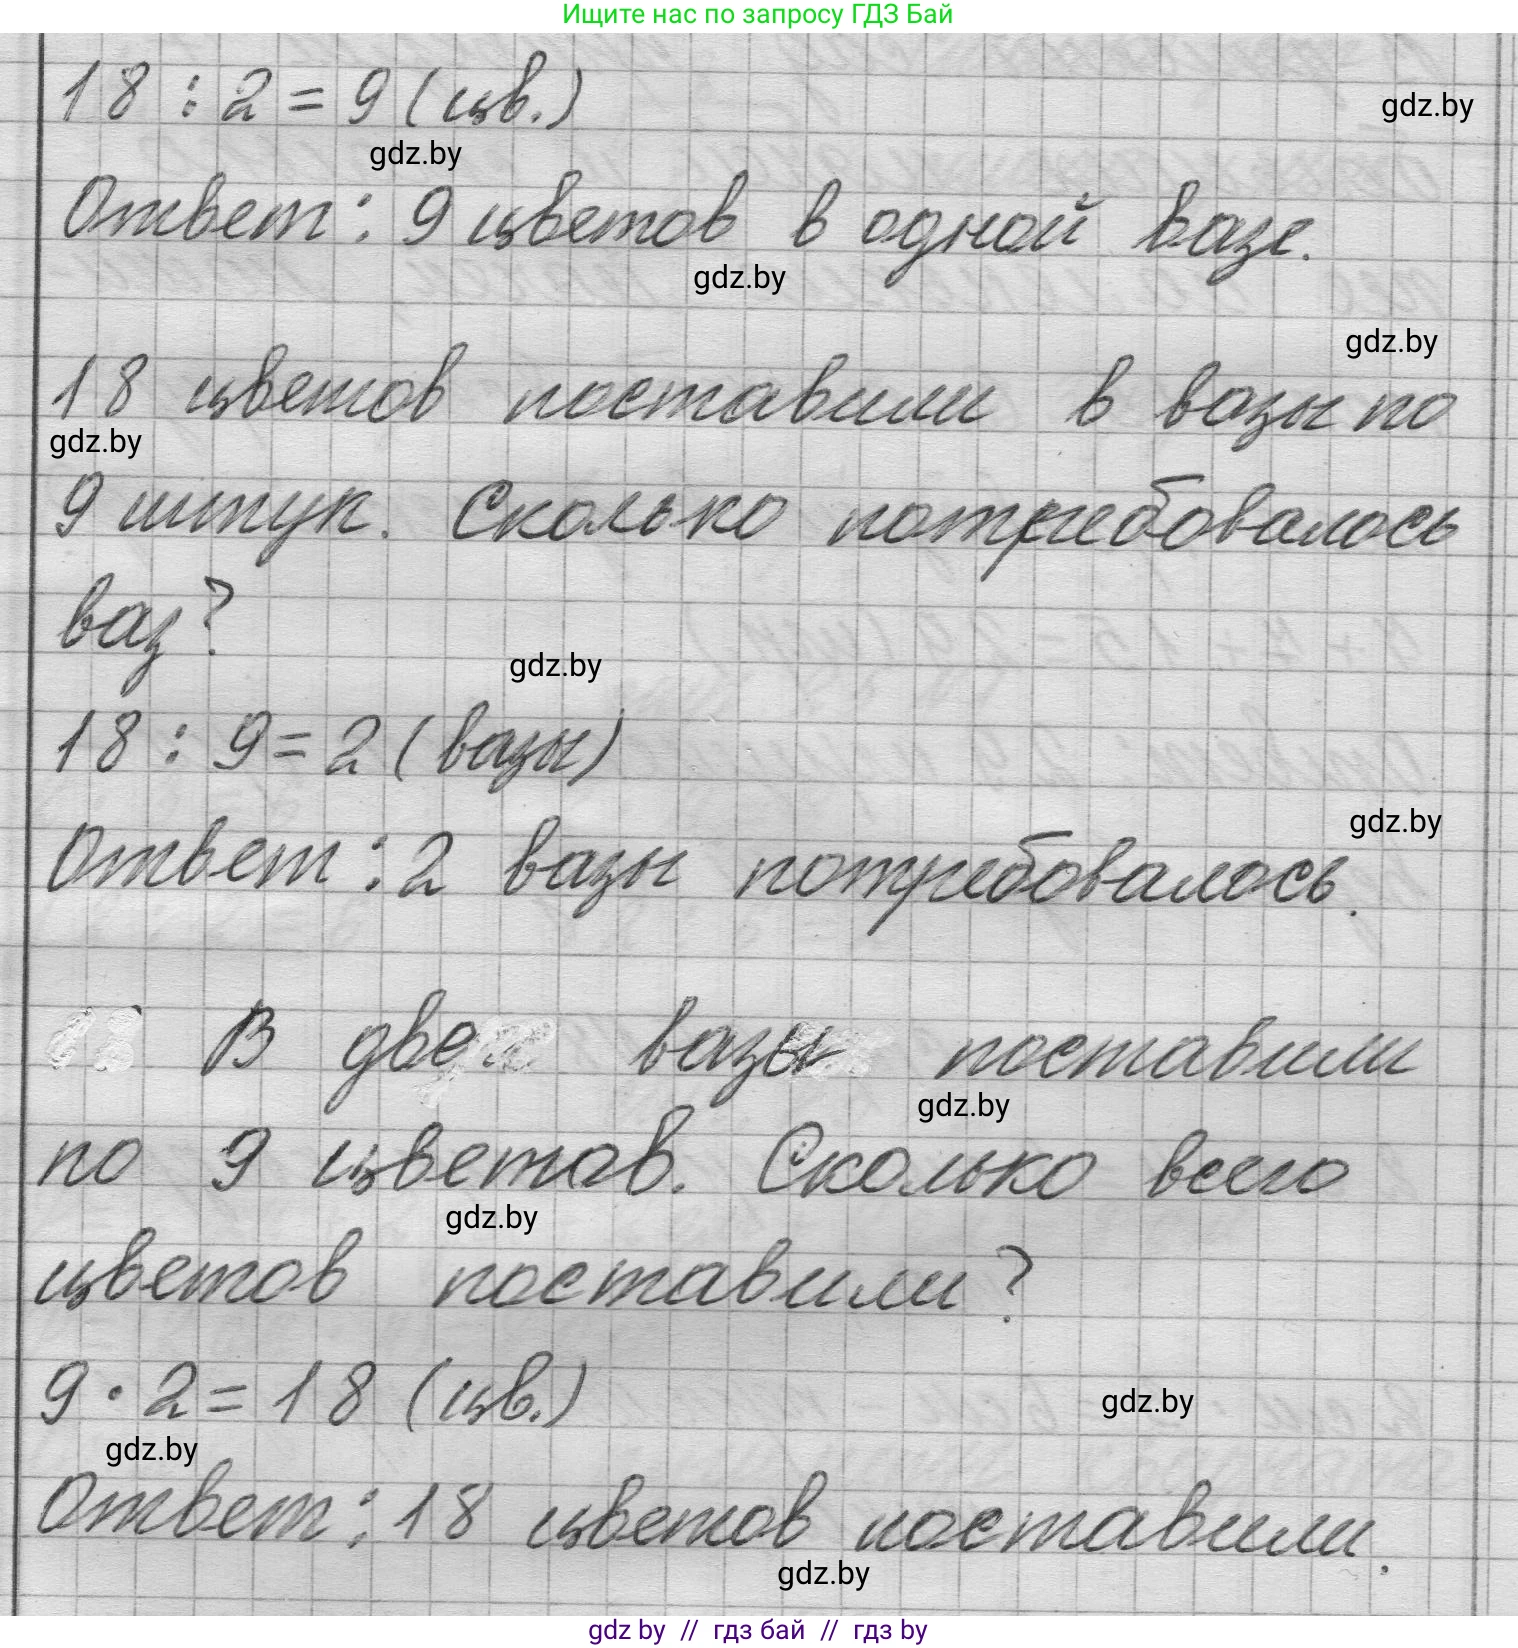 Ищите нас по запросу ГДЗ Бай
18 : 2 = 9 (цв.)
gdz.by
gdz.by
Ответ: 9 цветов в одной вазе.
gdz.by
gdz.by
18 цветов поставили в вазы по
gdz.by
9 штук. Сколько потребовалось
ваз?
gdz.by
18 : 9 = 2 (вазы)
gdz.by
Ответ: 2 вазы потребовалось.
В две вазы поставили
gdz.by
по 9 цветов. Сколько всего
gdz.by
цветов поставили?
9 · 2 = 18 (цв.)
gdz.by
gdz.by
Ответ: 18 цветов поставили.
gdz.by
gdz by // гдз бай // гдз by